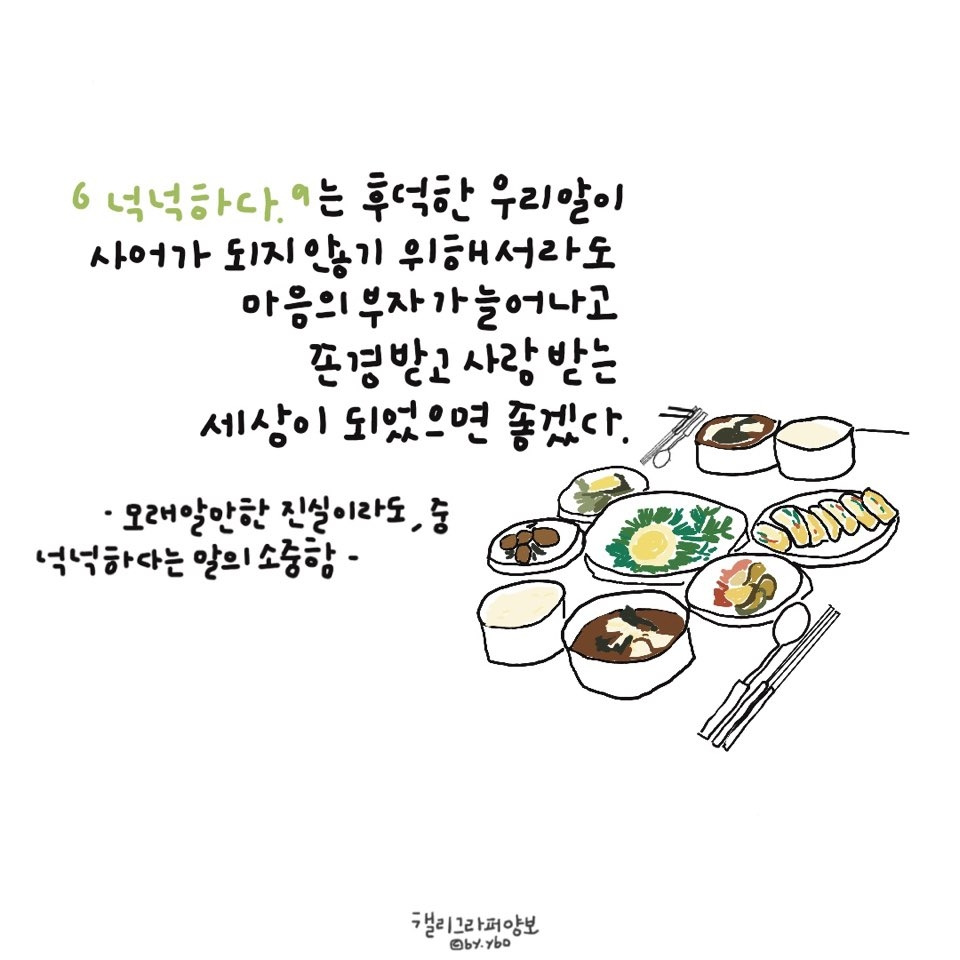 ‘넉넉하다.’는 후덕한 우리말이
사어가 되지 않기 위해서라도
마음의 부자가 늘어나고
존경받고 사랑 받는
세상이 되었으면 좋겠다.
- 모래알만한 진실이라도, 중
넉넉하다는 말의 소중함 -
캘리그라퍼양보
©by.ybo